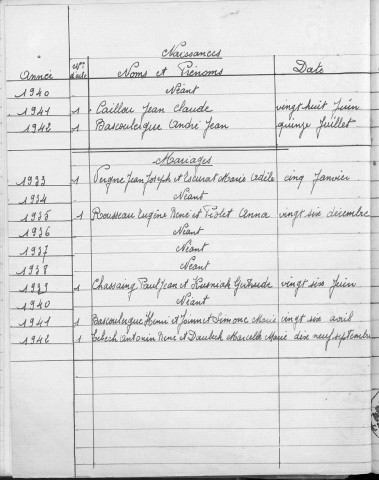 Naissances
Année Nos d'acte Noms et Prénoms Date
1940 Néant
1941 1 Caillou Jean Claude vingt huit Juin
1942 1 Bascoulergue André Jean quinze Juillet
Mariages
1933 1 Vergne Jean Joseph et Escurat Marie Odile cinq Janvier
1934 Néant
1935 1 Rousseau Eugène René et Piolet Anna vingt six décembre
1936 Néant
1937 Néant
1938 Néant
1939 1 Chassaing Paul Jean et Kusniak Gertrude vingt six Juin
1940 Néant
1941 1 Bascoulergue Henri et Simone Marie vingt six avril
1942 1 Antonin René et Marcelle Marie dix neuf septembre